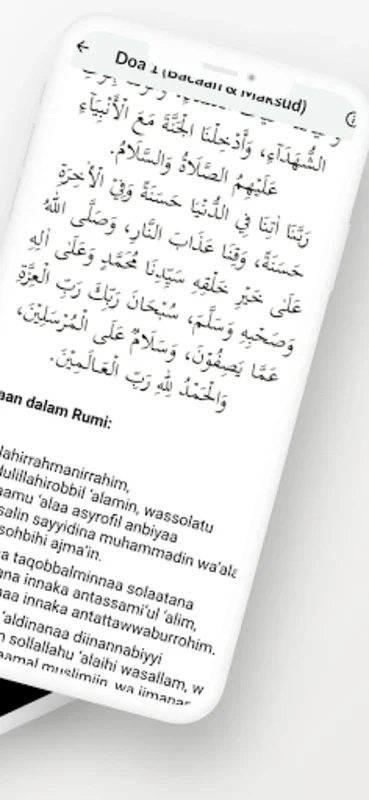 Doa 1 (Bacaan & Maksud)
الشُّهَدَآءِ، وَأَدْخِلْنَا الْجَنَّةَ مَعَ الْأَنْبِيَآءِ
عَلَيْهِمُ الصَّلَاةُ وَالسَّلَامُ.
رَبَّنَا اٰتِنَا فِي الدُّنْيَا حَسَنَةً وَفِي الْاٰخِرَةِ
حَسَنَةً، وَقِنَا عَذَابَ النَّارِ، وَصَلَّى اللهُ
عَلٰى خَيْرِ خَلْقِهِ سَيِّدِنَا مُحَمَّدٍ وَعَلٰى اٰلِهِ
وَصَحْبِهِ وَسَلَّمَ، سُبْحَانَ رَبِّكَ رَبِّ الْعِزَّةِ
عَمَّا يَصِفُوْنَ، وَسَلَامٌ عَلَى الْمُرْسَلِيْنَ،
وَالْحَمْدُ لِلّٰهِ رَبِّ الْعَالَمِيْنَ.
aan dalam Rumi:
lahirrahmanirrahim,
dulillahirobbil 'alamin, wassolatu
aamu 'alaa asyrofil anbiyaa
salin sayyidina muhammadin wa'ala
sohbihi ajma'in.
a taqobbalminnaa solaatana
ana innaka antassami'ul 'alim,
aa innaka antattawwaburrohim.
'aldinanaa diinannabiyyi
n sollallahu 'alaihi wasallam, w
aamal muslimiin, wa iimanan